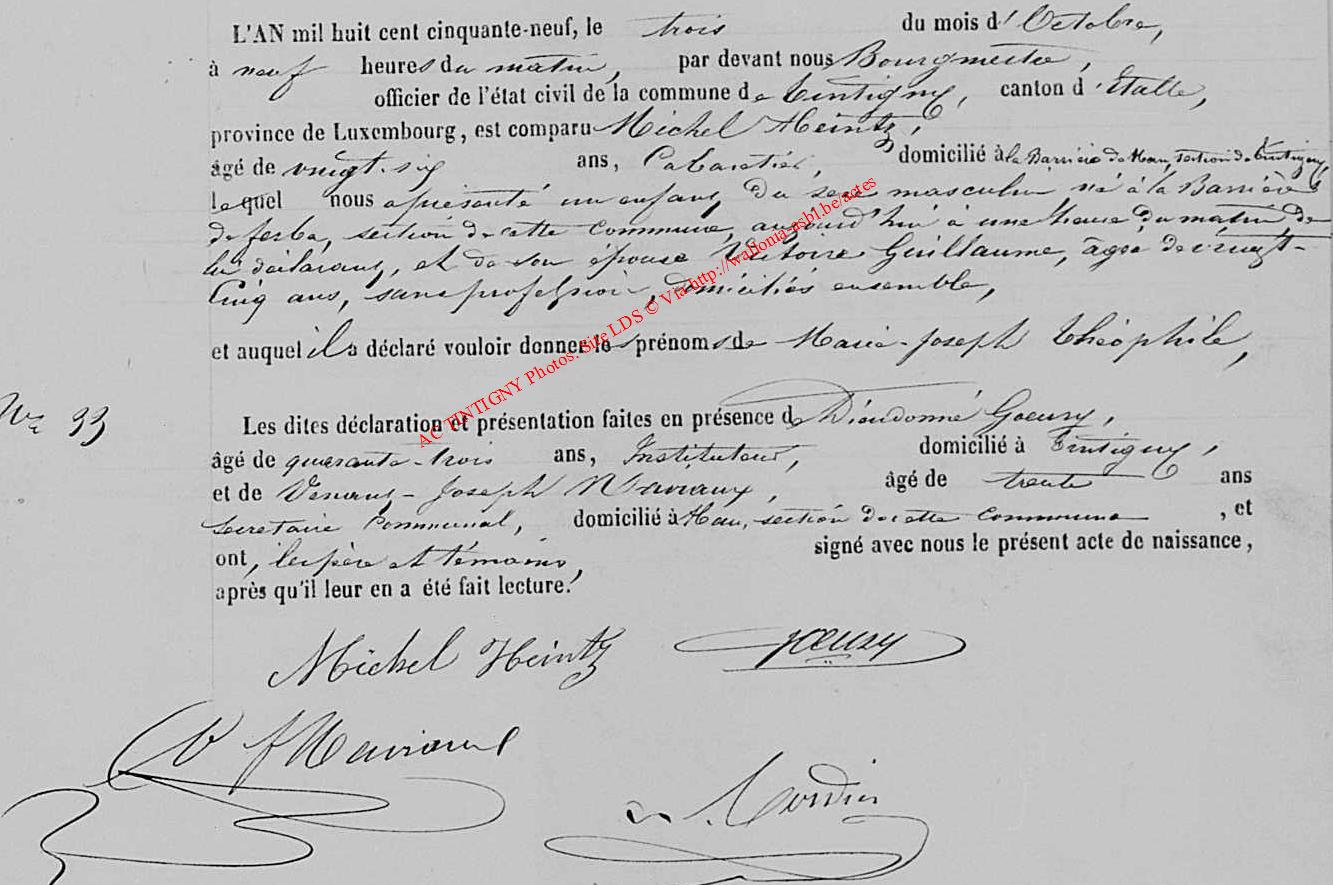 L'AN mil huit cent cinquante-neuf, le trois du mois d'Octobre,
à neuf heures du matin, par devant nous Bourgmestre,
officier de l'état civil de la commune de Tintigny, canton d'Etalle,
province de Luxembourg, est comparu Michel Heintz,
âgé de vingt-six ans, Cabaretier, domicilié à la Barrière de Han, section de Tintigny
lequel nous a présenté un enfant du sexe masculin né à la Barrière
de ferba, section de cette commune, aujourd'hui à une heure du matin de
lui déclarant, et de son épouse Victoire Guillaume, âgée de vingt-
cinq ans, sans profession, domiciliés ensemble,
et auquel il a déclaré vouloir donner les prénoms de Marie-Joseph Théophile,
No 93
Les dites déclaration et présentation faites en présence de Dieudonné Goeury,
âgé de quarante-trois ans, Instituteur, domicilié à Tintigny,
et de Venant-Joseph âgé de trente ans
Secrétaire Communal, domicilié à Han, section de cette commune, et
ont, les père et témoins, signé avec nous le présent acte de naissance,
après qu'il leur en a été fait lecture.
Michel Heintz Goeury
AC TINTIGNY Photos: Site LDS © Via http://wallonia-asbl.be/actes